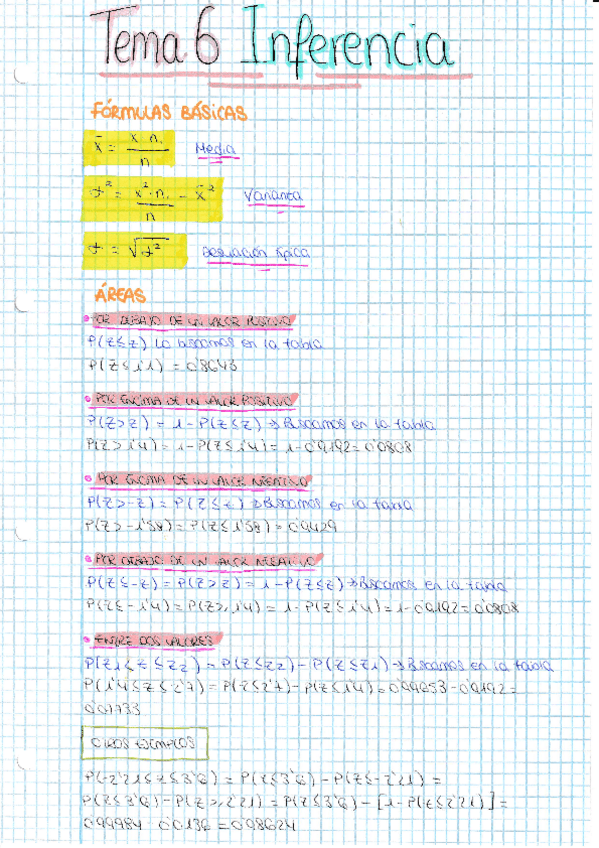 Tema 6 Inferencia
FÓRMULAS BÁSICAS
x̄ = x · nᵢ / n Media
σ² = x² · nᵢ / n - x̄² Varianza
σ = √σ² Desviación típica
ÁREAS
• POR DEBAJO DE UN VALOR POSITIVO
P(Z≤z) Lo buscamos en la tabla
P(Z≤1'1) = 0'8643
• POR ENCIMA DE UN VALOR POSITIVO
P(Z>z) = 1 - P(Z≤z) → Buscamos en la tabla
P(Z>1'4) = 1 - P(Z≤1'4) = 1 - 0'9192 = 0'0808
• POR ENCIMA DE UN VALOR NEGATIVO
P(Z>-z) = P(Z≤z) → Buscamos en la tabla
P(Z>-1'58) = P(Z≤1'58) = 0'9429
• POR DEBAJO DE UN VALOR NEGATIVO
P(Z≤-z) = P(Z>z) = 1 - P(Z≤z) → Buscamos en la tabla
P(Z≤-1'4) = P(Z>1'4) = 1 - P(Z≤1'4) = 1 - 0'9192 = 0'0808
• ENTRE DOS VALORES
P(z1≤z≤z2) = P(Z≤z2) - P(Z≤z1) → Buscamos en la tabla
P(1'4≤z≤2'7) = P(z≤2'7) - P(z≤1'4) = 0'99653 - 0'9192 =
0'07733
OTROS EJEMPLOS
P(-2'21≤z≤3'6) = P(z≤3'6) - P(z≤-2'21) =
P(z≤3'6) - P(z>2'21) = P(z≤3'6) - [1 - P(z≤2'21)] =
0'99984 - 0'0136 = 0'98624